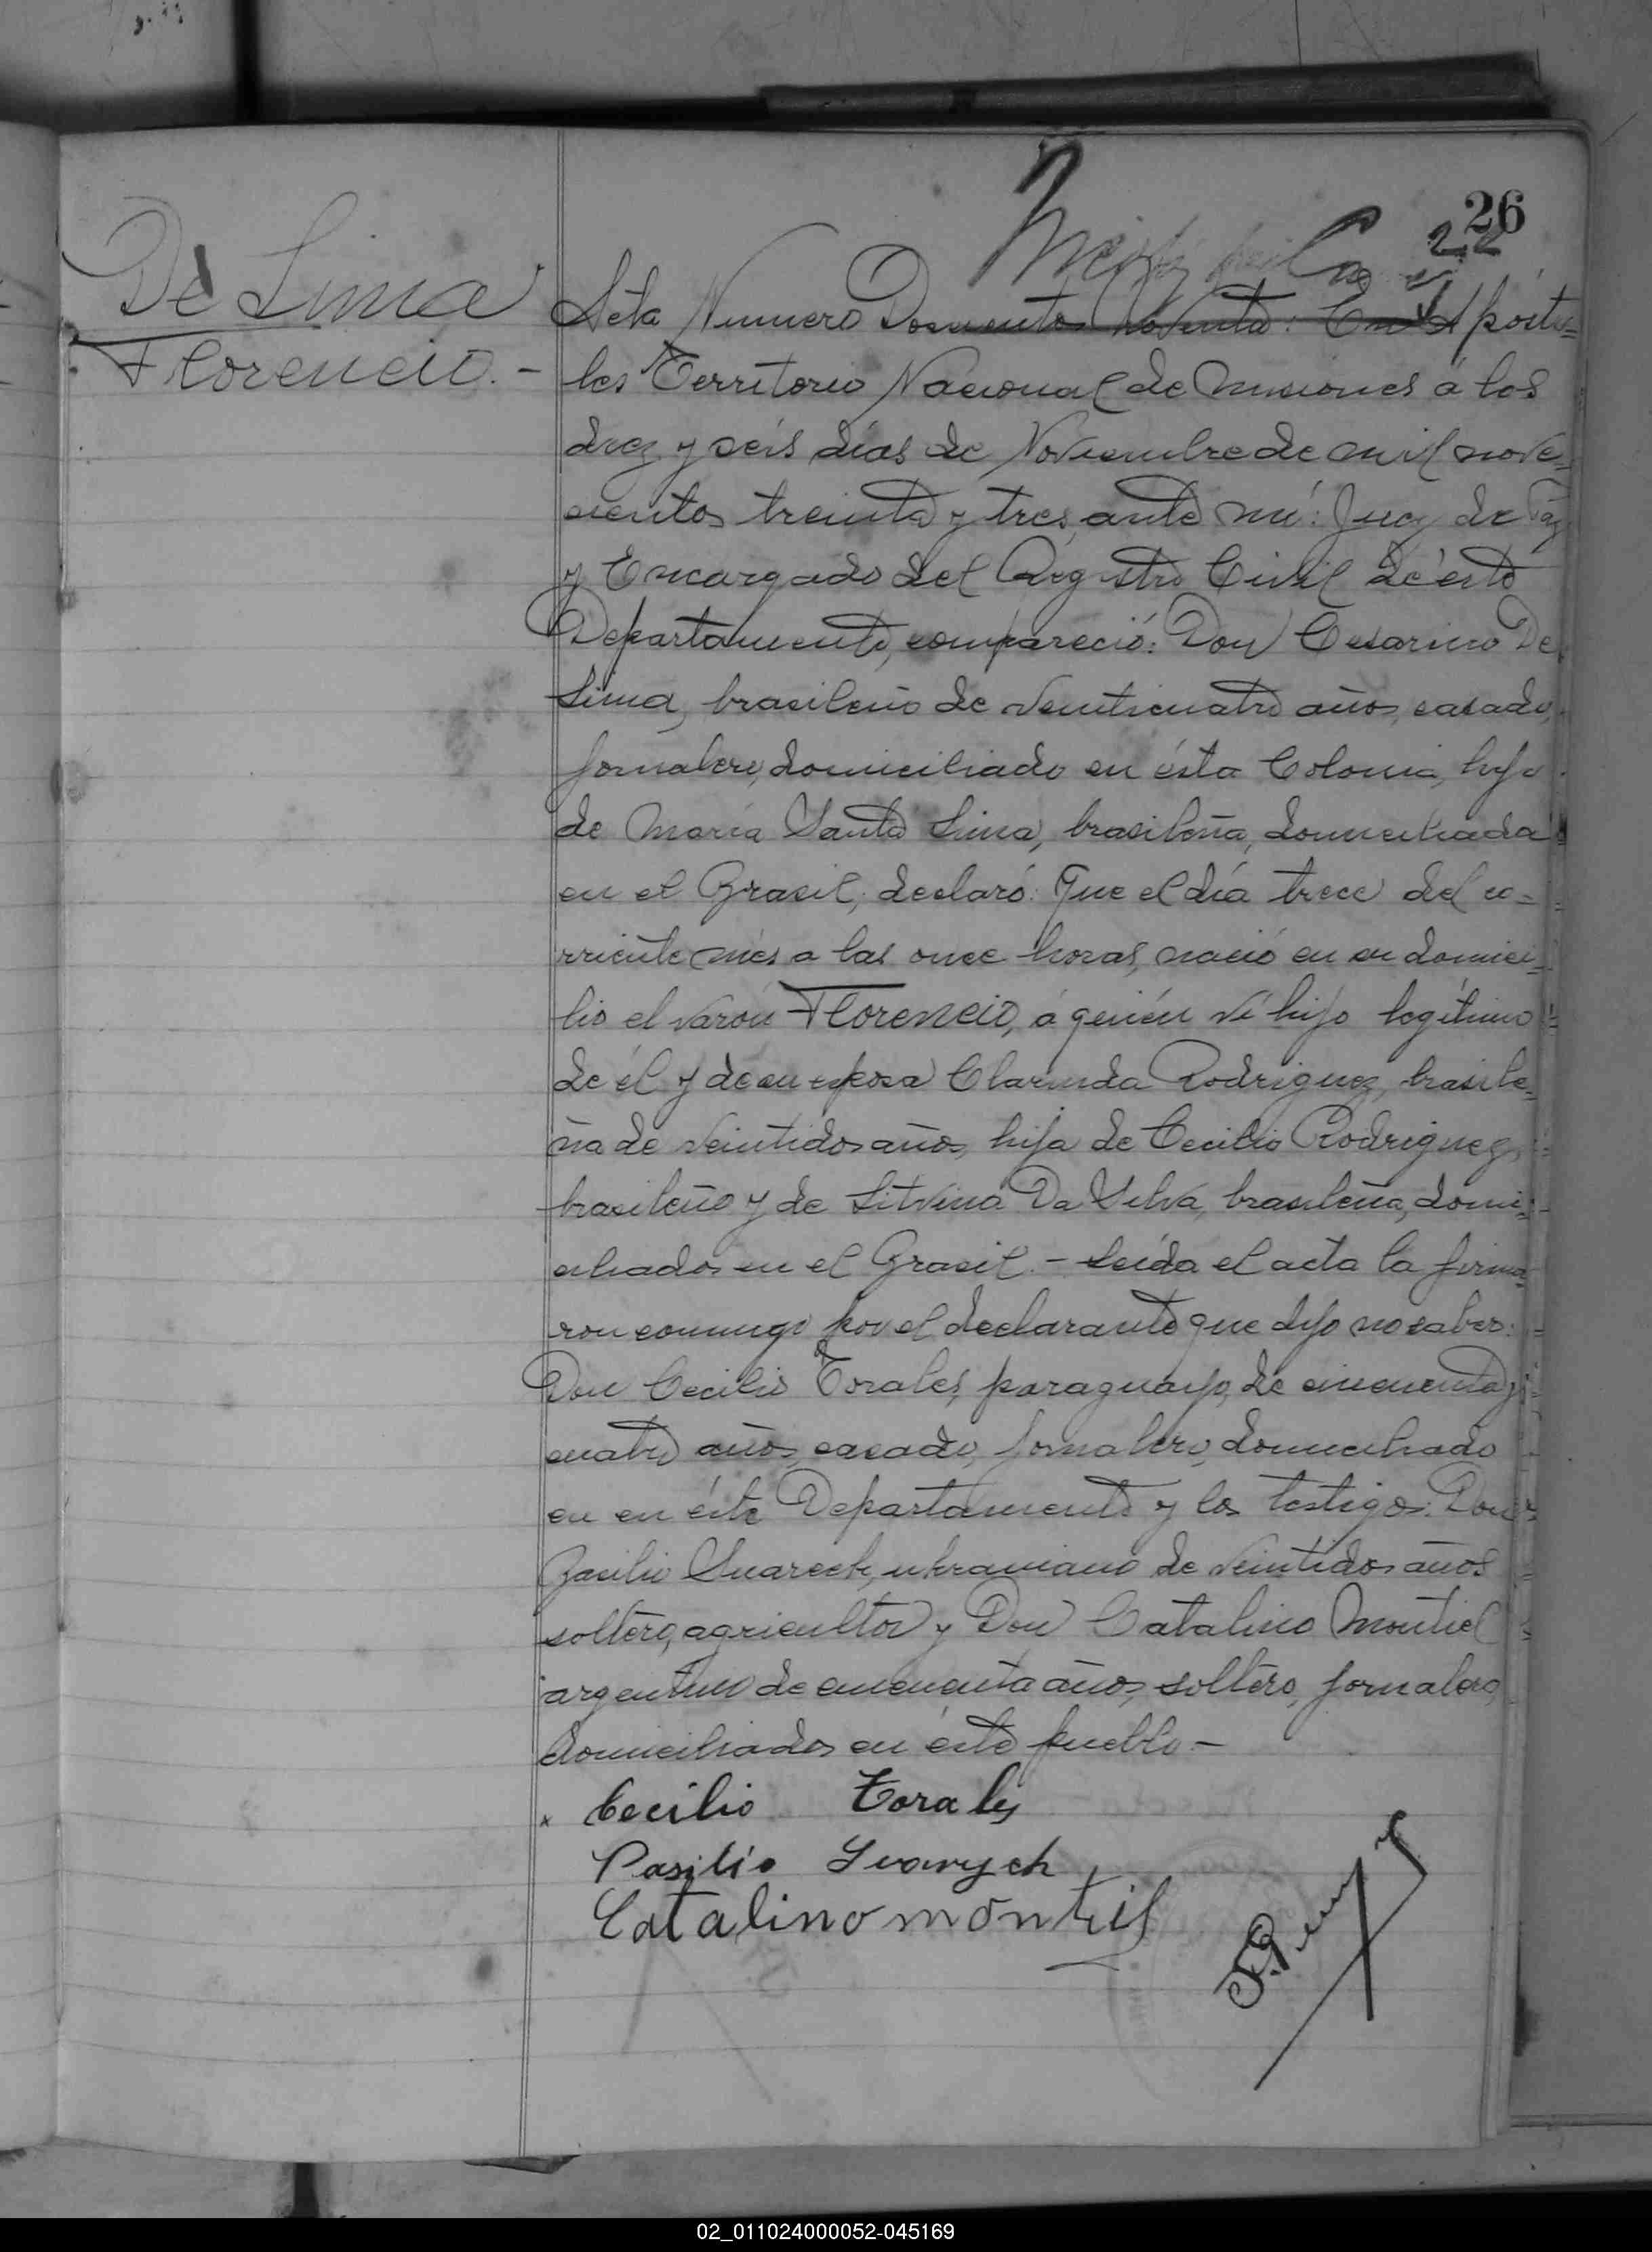 26
22
De Lima
Florencio. -
Acta Numero Doscientos noventa: En Apósto-
les Territorio Nacional de Misiones á los
diez y seis días de Noviembre de mil nove-
cientos treinta y tres, ante mí: Juez de Paz
y Encargado del Registro Civil de éste
Departamento, compareció: Don Cesarino De
Lima, brasileño de veinticuatro años, casado,
jornalero, domiciliado en ésta Colonia, hijo
de María Santa Lima, brasileña, domiciliada
en el Brasil; declaró: Que el día trece del co-
rriente mes a las once horas, nació en su domici-
lio el varón Florencio, á quién ví hijo legítimo
de él y de su esposa Clarinda Rodriguez, brasile-
ña de veintidos años, hija de Cecilio Rodriguez,
brasileño y de Litvina Da Silva, brasileña, domi-
ciliados en el Brasil. - Leída el acta la firma-
ron conmigo por el declarante que dijo no saber:
Don Cecilio Torales, paraguayo, de cincuenta y
cuatro años, casado, jornalero, domiciliado
en en éste Departamento y los testigos: Don
Basilio Suarech, ukraniano de veintidos años
soltero, agricultor y Don Catalino Montiel
argentino de cincuenta años, soltero, jornalero,
domiciliados en éste pueblo. -
x Cecilio Torales
Pasilio Swarych
Catalino montiel
02_011024000052-045169